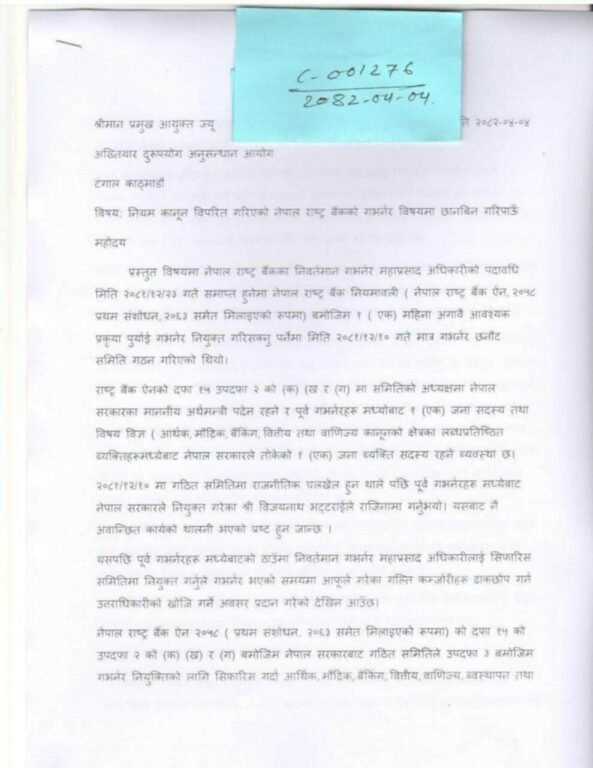 C-001276
2082-04-04.
श्रीमान प्रमुख आयुक्त ज्यू
२०८२-०४-०४
अख्तियार दुरूपयोग अनुसन्धान आयोग
टंगाल काठमाडौं
विषय: नियम कानून विपरित गरिएको नेपाल राष्ट्र बैंकको गभर्नर विषयमा छानबिन गरिपाऊँ
महोदय
प्रस्तुत विषयमा नेपाल राष्ट्र बैंकका निवर्तमान गभर्नर महाप्रसाद अधिकारीको पदावधि
मिति २०८१/१२/२३ गते समाप्त हुनेमा नेपाल राष्ट्र बैंक नियमावली ( नेपाल राष्ट्र बैंक ऐन, २०५८
प्रथम संशोधन, २०६३ समेत मिलाइएको रूपमा) बमोजिम १ ( एक) महिना अगावै आवश्यक
प्रकृया पुर्याई गभर्नर नियुक्त गरिसक्नु पर्नेमा मिति २०८१/१२/१० गते मात्र गभर्नर छनौट
समिति गठन गरिएको थियो।
राष्ट्र बैंक ऐनको दफा १५ उपदफा २ को (क) (ख र (ग) मा समितिको अध्यक्षमा नेपाल
सरकारका माननीय अर्थमन्त्री पदेन रहने र पूर्व गभर्नरहरू मध्येबाट १ (एक) जना सदस्य तथा
विषय विज्ञ ( आर्थिक, मौद्रिक, बैंकिग, वित्तीय तथा वाणिज्य कानूनको क्षेत्रका लब्धप्रतिष्ठित
व्यक्तिहरूमध्येबाट नेपाल सरकारले तोकेको १ (एक) जना ब्यक्ति सदस्य रहने ब्यवस्था छ।
२०८१/१२/१० मा गठित समितिमा राजनीतिक चलखेल हुन थाले पछि पूर्व गभर्नरहरू मध्येबाट
नेपाल सरकारले नियुक्त गरेका श्री विजयनाथ भट्टराईले राजिनामा गर्नुभयो। यसबाट नै
अवान्छित कार्यको थालनी भएको प्रष्ट हुन जान्छ ।
यसपछि पूर्व गभर्नरहरू मध्येबाटको ठाउँमा निवर्तमान गभर्नर महाप्रसाद अधिकारीलाई सिफारिस
समितिमा नियुक्त गर्नुले गभर्नर भएको समयमा आफूले गरेका गल्ति कम्जोरीहरु ढाकछोप गर्न
उत्तराधिकारीको खोजि गर्ने अवसर प्रदान गरेको देखिन आउँछ।
नेपाल राष्ट्र बैंक ऐन २०५८ ( प्रथम संशोधन. २०६३ समेत मिलाइएको रूपमा) को दफा १५ को
उपदफा २ को (क) (ख) र (ग) बमोजिम नेपाल सरकारबाट गठित समितिले उपदफा ३ बमोजिम
गभर्नर नियुक्तिको लागि सिफारिस गर्दा आर्थिक, मौद्रिक, बैंकिग, वित्तीय, वाणिज्य, ब्यवस्थापन तथा